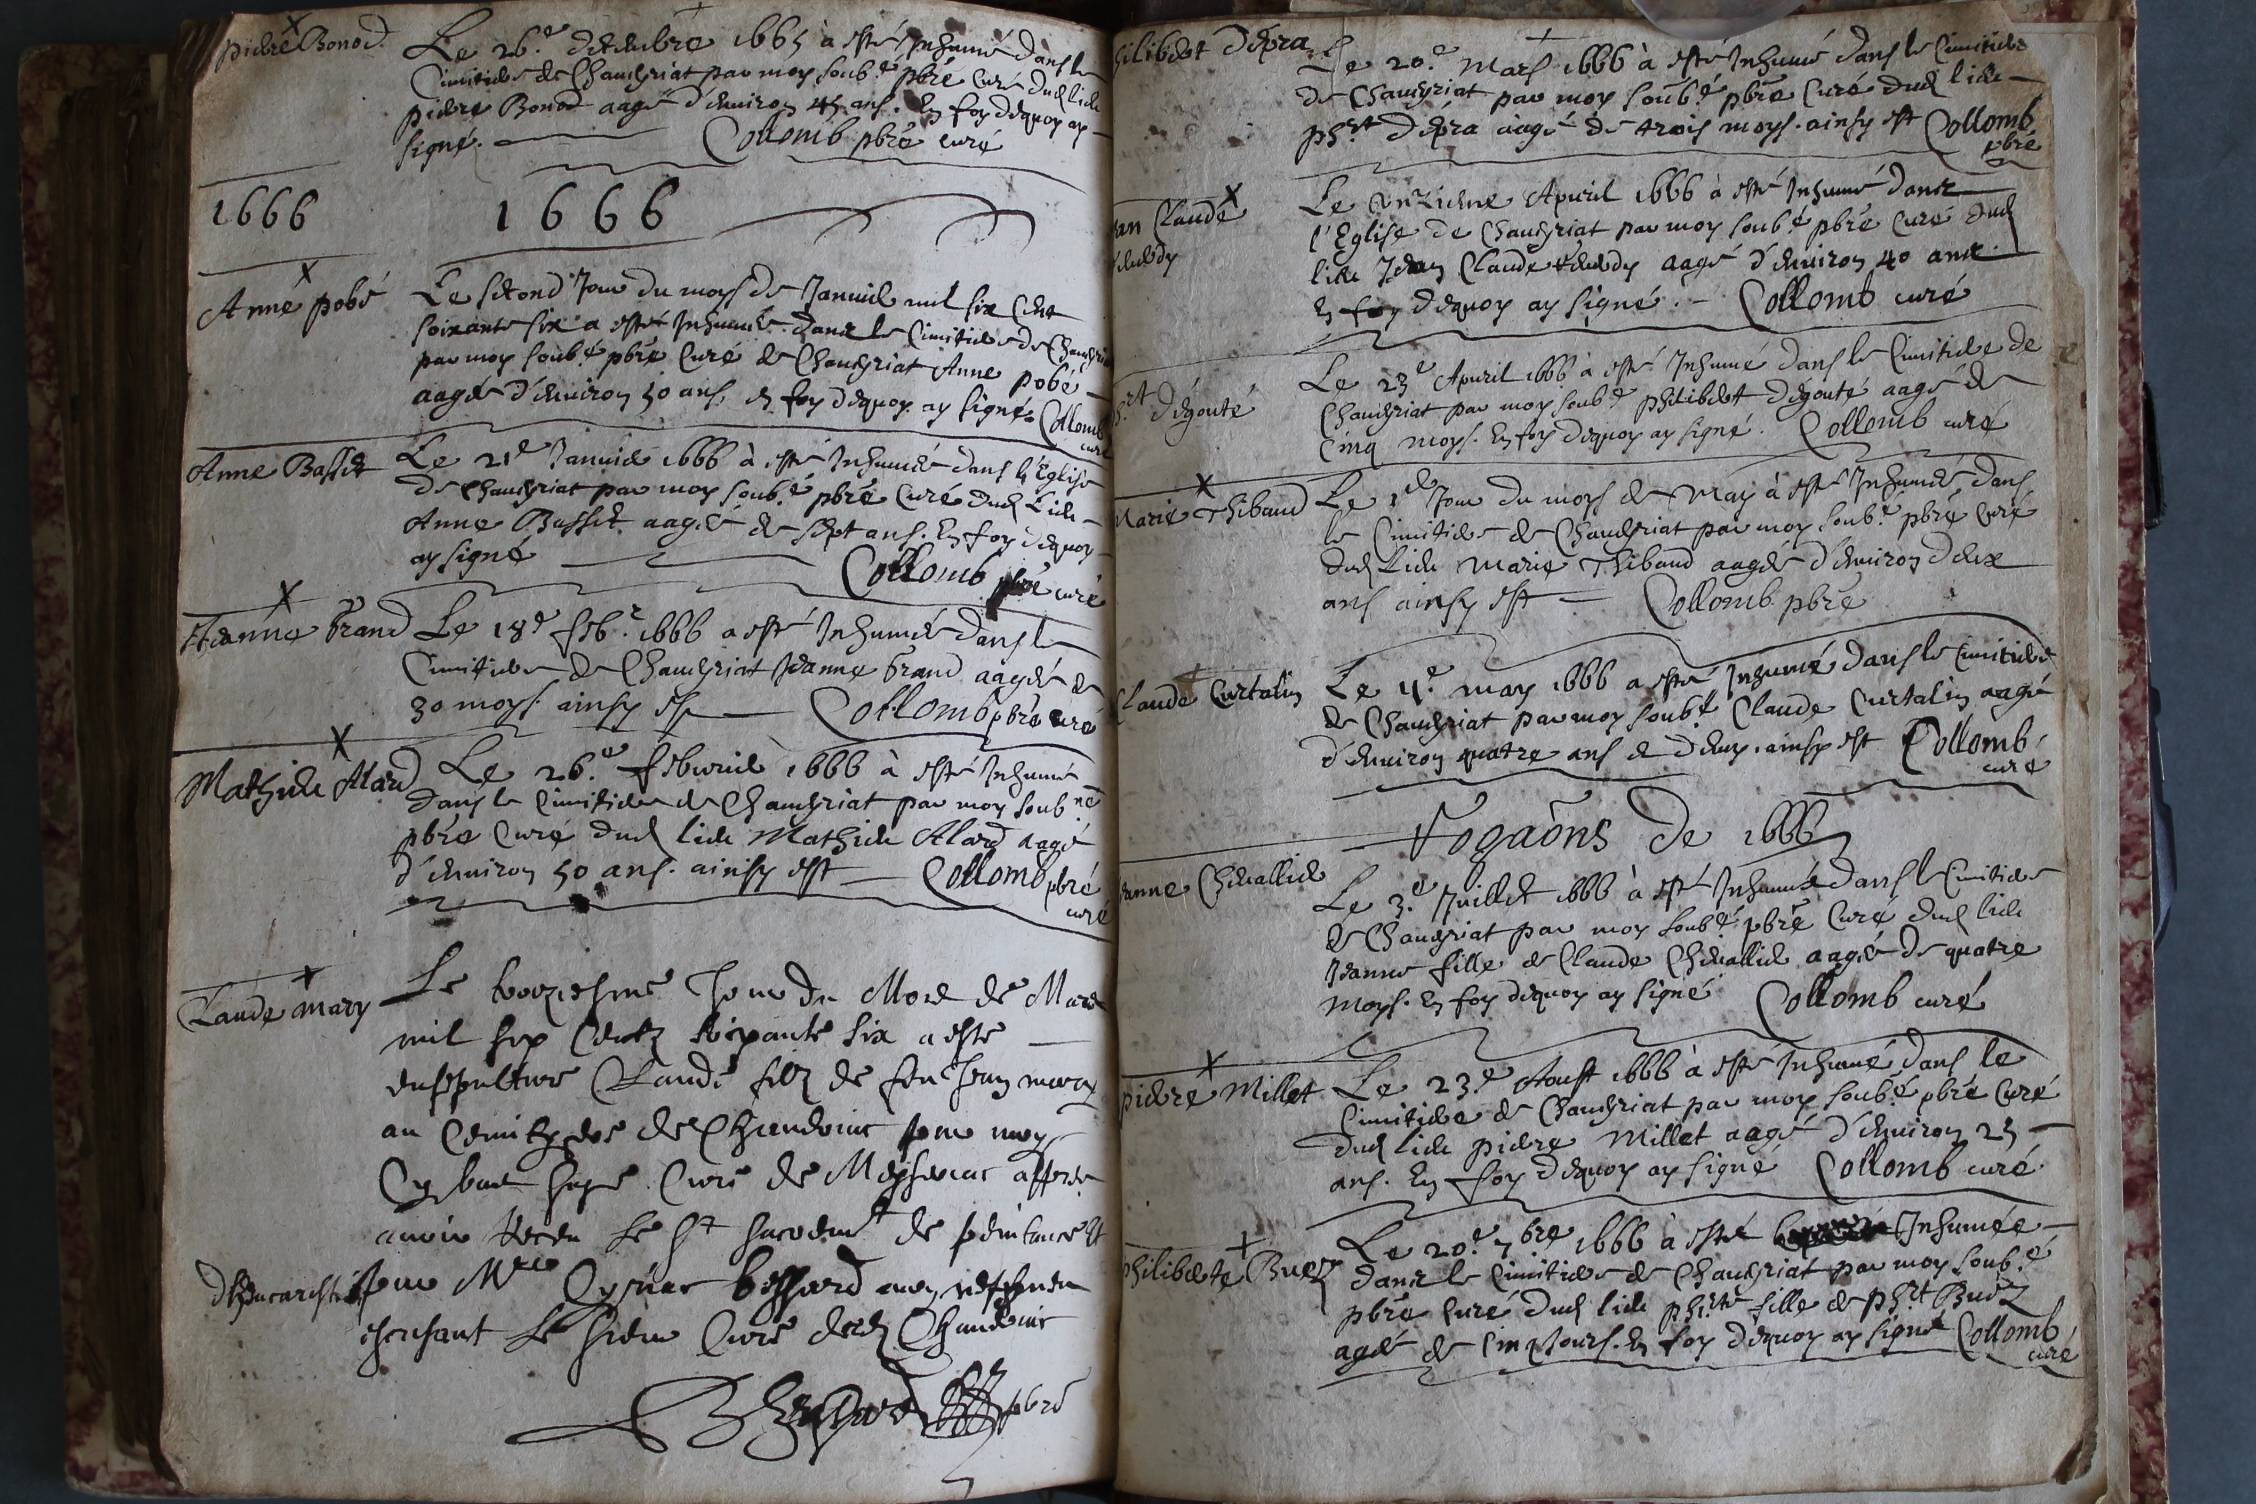 pierre Bonod.
Le 26.e decembre 1665 à esté Inhumé dans le
Cimitiere de Chaveyriat par moy soub.é pbrē Curé dud lieu
pierre Bonod aagé d'environ 45 ans. En foy dequoy ay
signé. Collomb pbrē curé
1666
1666
Anne pobé
Le second Jour du moys de Janvier mil six Cent
soixante six a esté Inhumée dans le Cimitiere de Chaveyriat
par moy soub.é pbrē Curé de Chaveyriat Anne pobé
aagée d'environ 50 ans, en foy dequoy ay signé Collomb
curé
Anne Basset
Le 21e Janvier 1666 à esté Inhumée dans l'Eglise
de Chaveyriat par moy soub.é pbrē Curé dud Lieu
Anne Basset aagée de sept ans. En foy dequoy
ay signé Collomb pbrē curé
Jeanne brand
Le 18e feb.r 1666 a esté Inhumée dans le
Cimitiere de Chaveyriat Jeanne brand aagée de
30 moys. ainsy est Collomb pbrē curé
Mathieu Alard
Le 26.e febvrier 1666 à esté Inhumé
dans le Cimitiere de Chaveyriat par moy soubné
pbrē Curé dud lieu Mathieu Alard aagé
d'environ 50 ans. ainsy est Collomb pbrē
curé
Claude mary
Le Jour du Moys de Mars
mil six Centz soixante six a esté
ensepulturé Claude filz de feu Jean mary
au Cemityere de Chaveiria par moy
Curé de Meseria apres
avoir Receu le St Sacremt de penitance et
d'Eucaristie par Mre
Le sieur Curé dud Chaveiria
pbrē
philibert depra
Le 20.e Mars 1666 à esté Inhumé dans le Cimitiere
de Chaveyriat par moy soub.é pbrē Curé dud lieu
ph.rt depra aagé de trois moys. ainsy est Collomb
pbrē
Jean Claude
Le Avril 1666 à esté Inhumé dans
l'Eglise de Chaveyriat par moy soub.é pbrē Curé dud
lieu Jean Claude aagé d'environ 40 ans
En foy dequoy ay signé. Collomb curé
ph.rt degouté
Le 23e Avril 1666 à esté Inhumé dans le Cimitiere de
Chaveyriat par moy soub.é philibert degouté aagé de
Cinq moys. En foy dequoy ay signé. Collomb curé
Marie Thibaud
Le 1er Jour du moys de May à esté Inhumée dans
le Cimitiere de Chaveyriat par moy soub.é pbrē Curé
dud Lieu Marie Thibaud aagée d'environ deux
ans ainsy est Collomb. pbrē
Claude Curtalin
Le 4.e may 1666 a esté Inhumé dans le Cimitiere
de Chaveyriat par moy soub.é Claude Curtalin aagé
d'environ quatre ans et demy. ainsy est Collomb
curé
Rogaõns de 1666
Jeanne Chevallier
Le 3.e Juillet 1666 à esté Inhumée dans le Cimitiere
de Chaveyriat par moy soub.é pbrē Curé dud lieu
Jeanne fille de Claude Chevallier aagée de quatre
moys. En foy dequoy ay signé Collomb curé
pierre Millet
Le 23.e Aoust 1666 à esté Inhumé dans le
Cimitiere de Chaveyriat par moy soub.é pbrē Curé
dud lieu pierre Millet aagé d'environ 25
ans. En foy dequoy ay signé Collomb curé
philiberte Buez
Le 20.e 7bre 1666 à esté Inhumée
dans le Cimitiere de Chaveyriat par moy soub.é
pbrē curé dud lieu ph.rte fille de ph.rt Buez
agée de Cinq Jours. En foy dequoy ay signé Collomb
curé